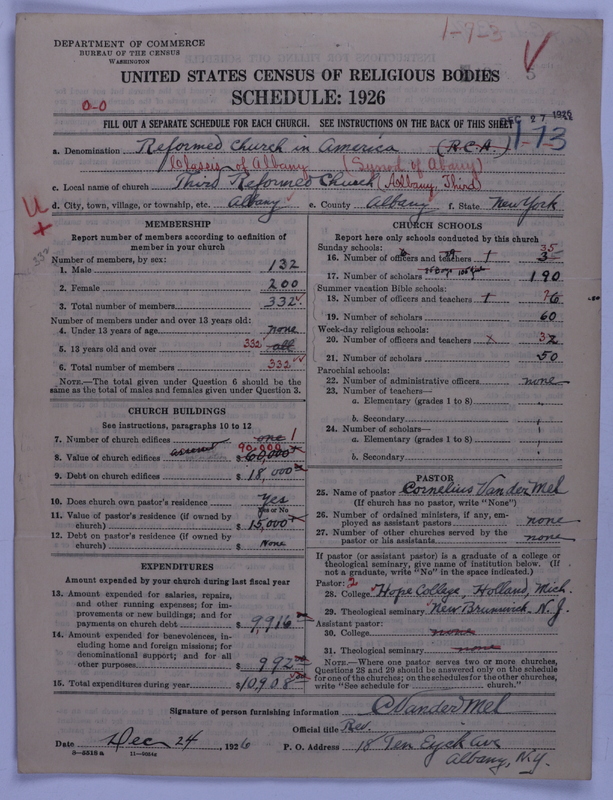 1-723
DEPARTMENT OF COMMERCE
BUREAU OF THE CENSUS
WASHINGTON
UNITED STATES CENSUS OF RELIGIOUS BODIES
SCHEDULE: 1926
0-0
FILL OUT A SEPARATE SCHEDULE FOR EACH CHURCH. SEE INSTRUCTIONS ON THE BACK OF THIS SHEET
DEC 27 1926
1-73
a. Denomination Reformed Church in America (R.C.A.)
Classis of Albany (Synod of Albany)
c. Local name of church Third Reformed Church (Albany, Third)
d. City, town, village, or township, etc. Albany e. County Albany f. State New York
332
MEMBERSHIP
Report number of members according to definition of member in your church
Number of members, by sex:
1. Male 132
2. Female 200
3. Total number of members 332
Number of members under and over 13 years old:
4. Under 13 years of age none
5. 13 years old and over 332 all
6. Total number of members 332
NOTE.—The total given under Question 6 should be the
same as the total of males and females given under Question 3.
CHURCH BUILDINGS
See instructions, paragraphs 10 to 12
7. Number of church edifices one 1
90,000
8. Value of church edifices assessed $ 60,000
9. Debt on church edifices $ 18,000
10. Does church own pastor's residence Yes
Yes or No
11. Value of pastor's residence (if owned by
church) $ 15,000
12. Debt on pastor's residence (if owned by
church) $ None
EXPENDITURES
Amount expended by your church during last fiscal year
13. Amount expended for salaries, repairs,
and other running expenses; for im-
provements or new buildings; and for
payments on church debt $ 9,916
14. Amount expended for benevolences, in-
cluding home and foreign missions; for
denominational support; and for all
other purposes $ 992
15. Total expenditures during year $ 10,908
CHURCH SCHOOLS
Report here only schools conducted by this church
Sunday schools:
16. Number of officers and teachers 35
17. Number of scholars 190
Summer vacation Bible schools:
18. Number of officers and teachers 6
19. Number of scholars 60
Week-day religious schools:
20. Number of officers and teachers
21. Number of scholars 50
Parochial schools:
22. Number of administrative officers none
23. Number of teachers—
a. Elementary (grades 1 to 8)
b. Secondary
24. Number of scholars—
a. Elementary (grades 1 to 8)
b. Secondary
PASTOR
25. Name of pastor Cornelius Vander Mel
(If church has no pastor, write "None")
26. Number of ordained ministers, if any, em-
ployed as assistant pastors none
27. Number of other churches served by the
pastor or his assistants none
If pastor (or assistant pastor) is a graduate of a college or
theological seminary, give name of institution below. (If
not a graduate, write "No" in the space indicated.)
Pastor: 2
28. College Hope College, Holland, Mich.
29. Theological seminary New Brunswick. N. J.
Assistant pastor:
30. College none
31. Theological seminary none
NOTE.—Where one pastor serves two or more churches,
Questions 28 and 29 should be answered only on the schedule
for one of the churches; on the schedules for the other churches,
write "See schedule for church."
Signature of person furnishing information C Vander Mel
Official title Rev.
Date Dec 24, 1926 P. O. Address 18 Ten Eyck Ave
Albany, N.Y.